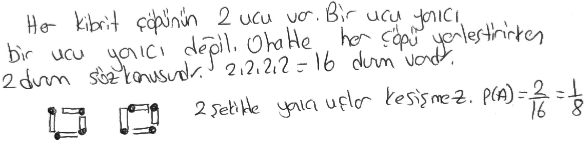 Her kibrit çöpünün 2 ucu var. Bir ucu yanıcı
bir ucu yanıcı değil. O halde her çöpü yerleştirirken
2 durum söz konusudur. 2.2.2.2 = 16 durum vardır.
2 şekilde yanıcı uçlar kesişmez. P(A) = 2/16 = 1/8